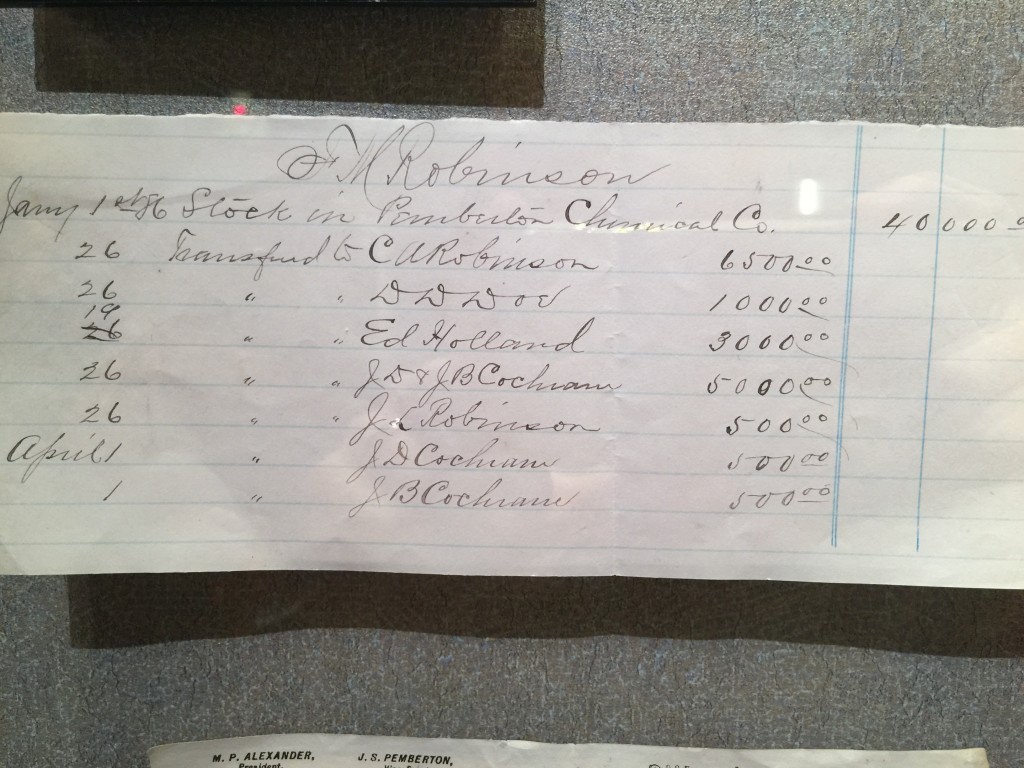 F M Robinson
Jany 1st 86 Stock in Pemberton Chemical Co. 40 000 0
26 Transferd to C A Robinson 6500 00
26 " " D D Doe 1000 00
19
26 " " Ed Holland 3000 00
26 " " J D & J B Cochrane 5000 00
26 " " J L Robinson 500 00
April 1 " J D Cochrane 500 00
1 " J B Cochrane 500 00
M. P. ALEXANDER, J. S. PEMBERTON,
President.